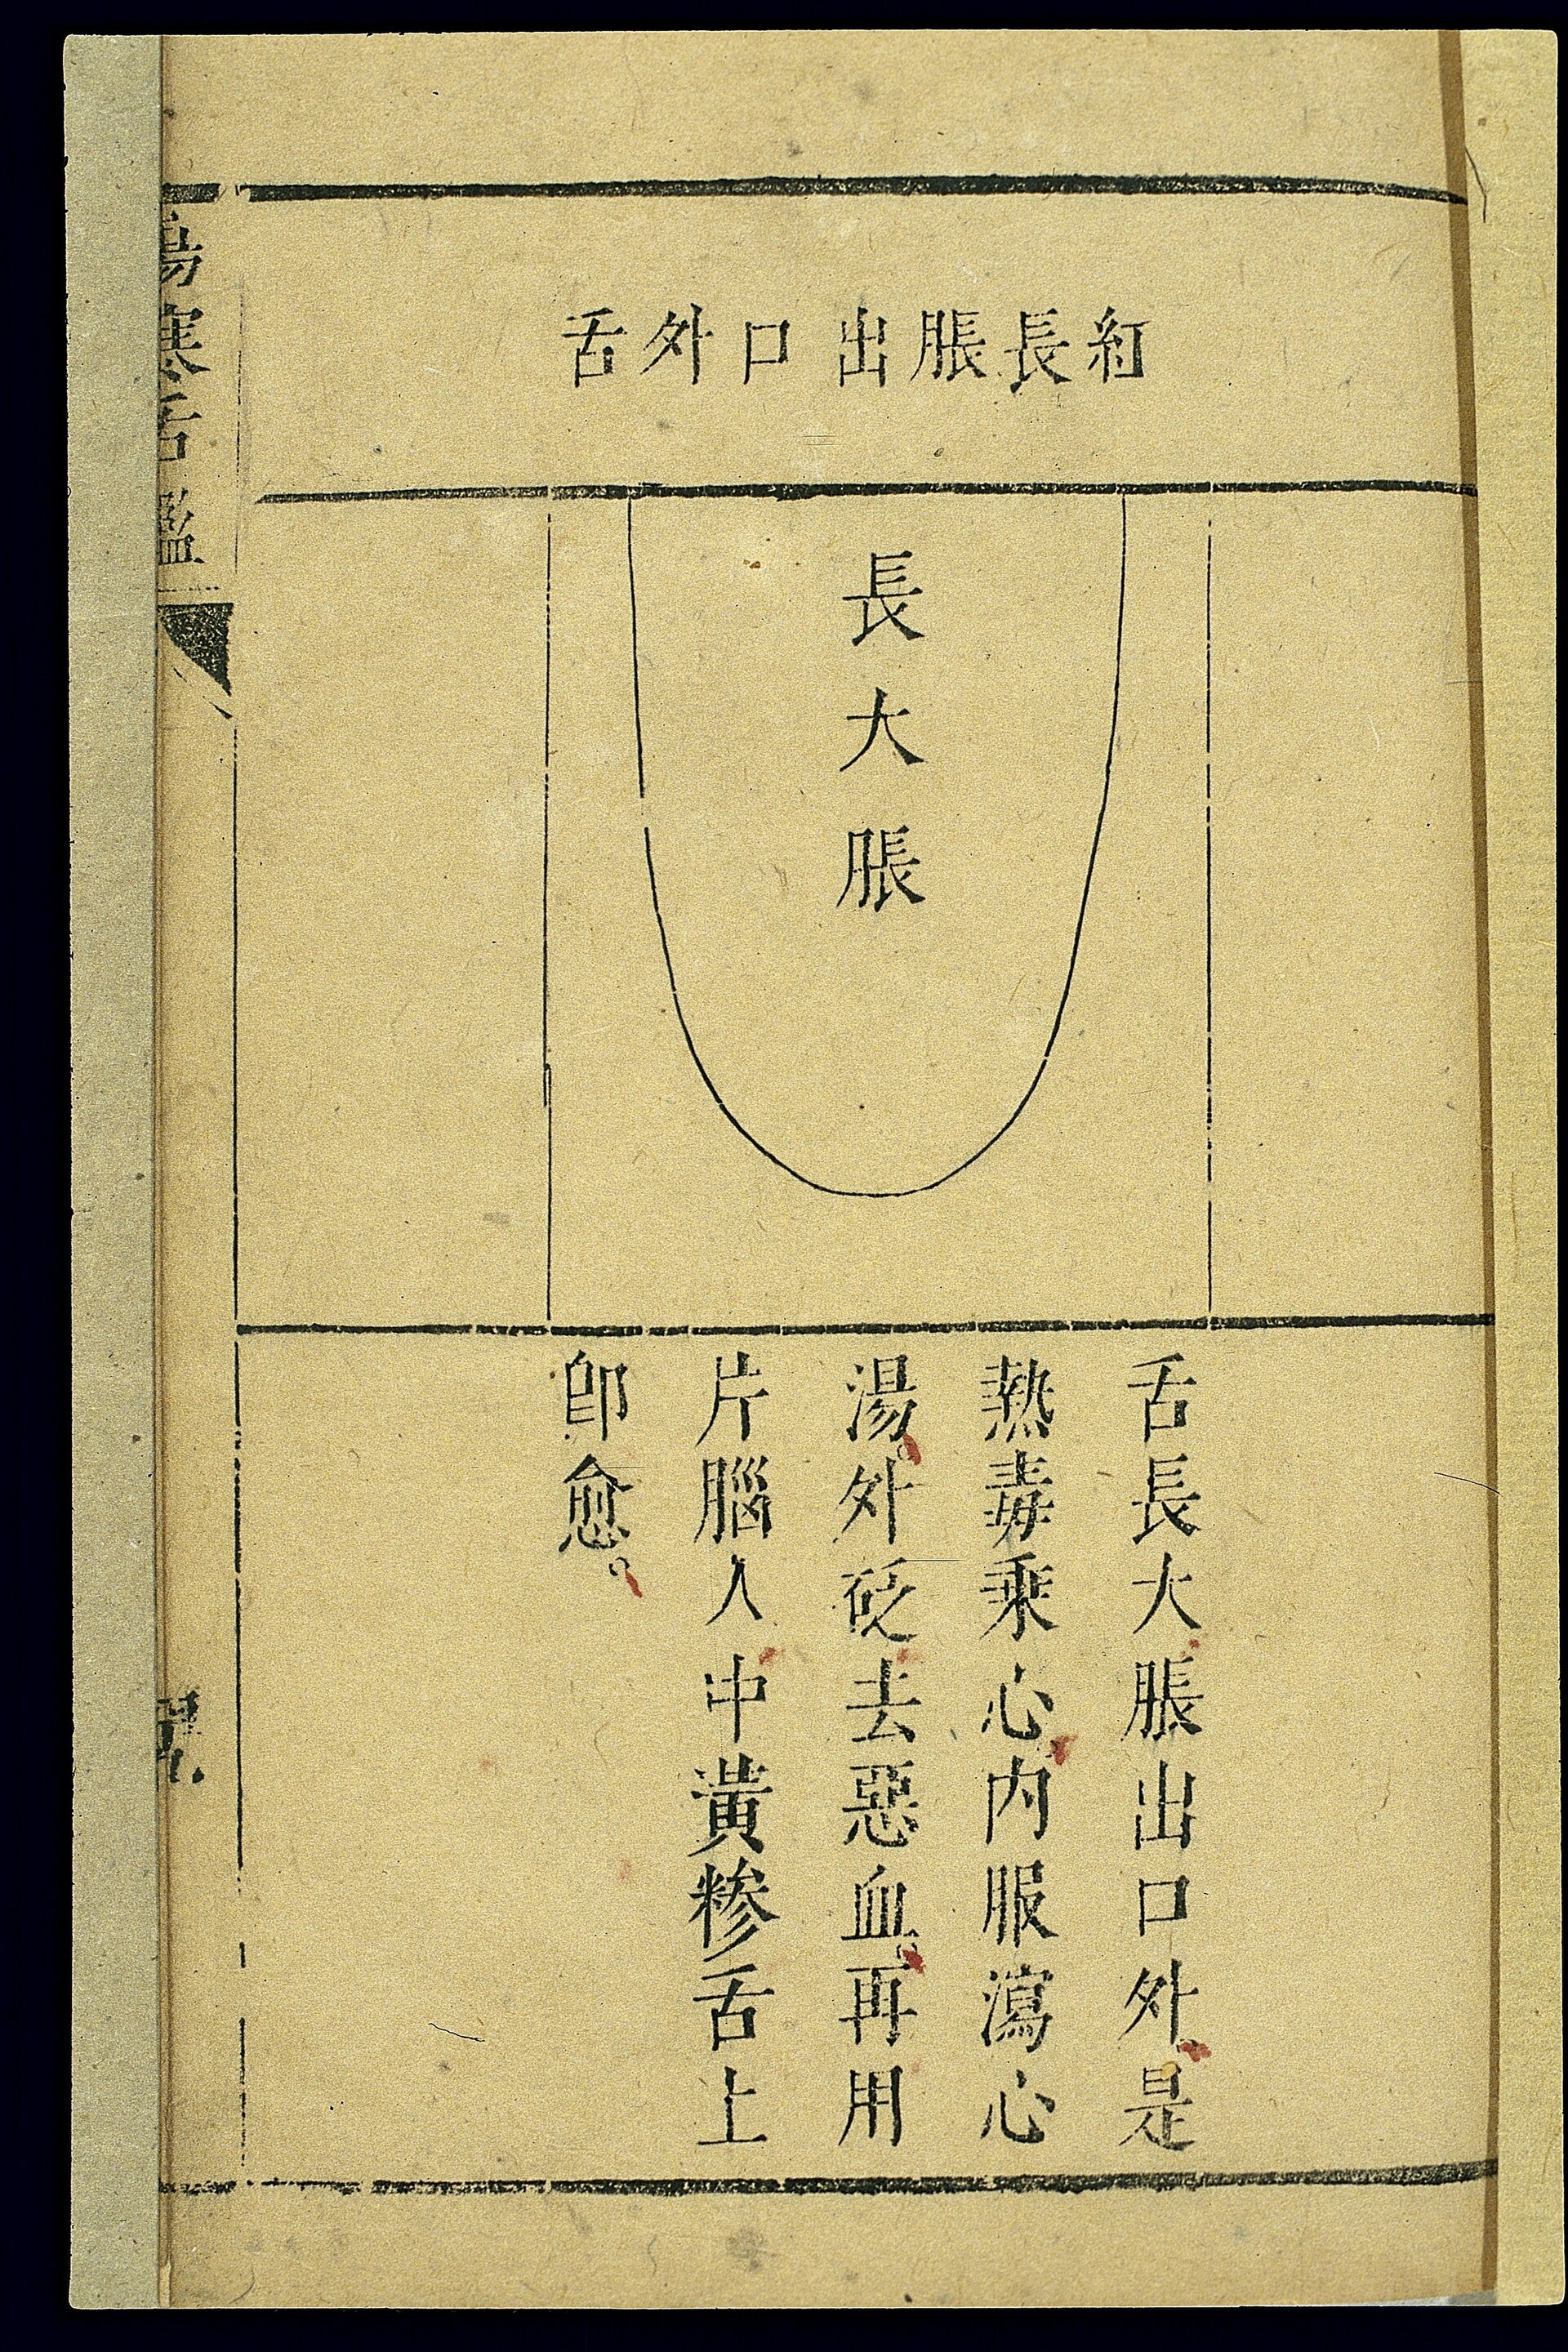 紅長脹出口外舌
長大脹
舌長大脹出口外是
熱毒乘心內服瀉心
湯。外砭去惡血。再用
片腦人中黃糝舌上
卽愈。
傷寒舌鑑